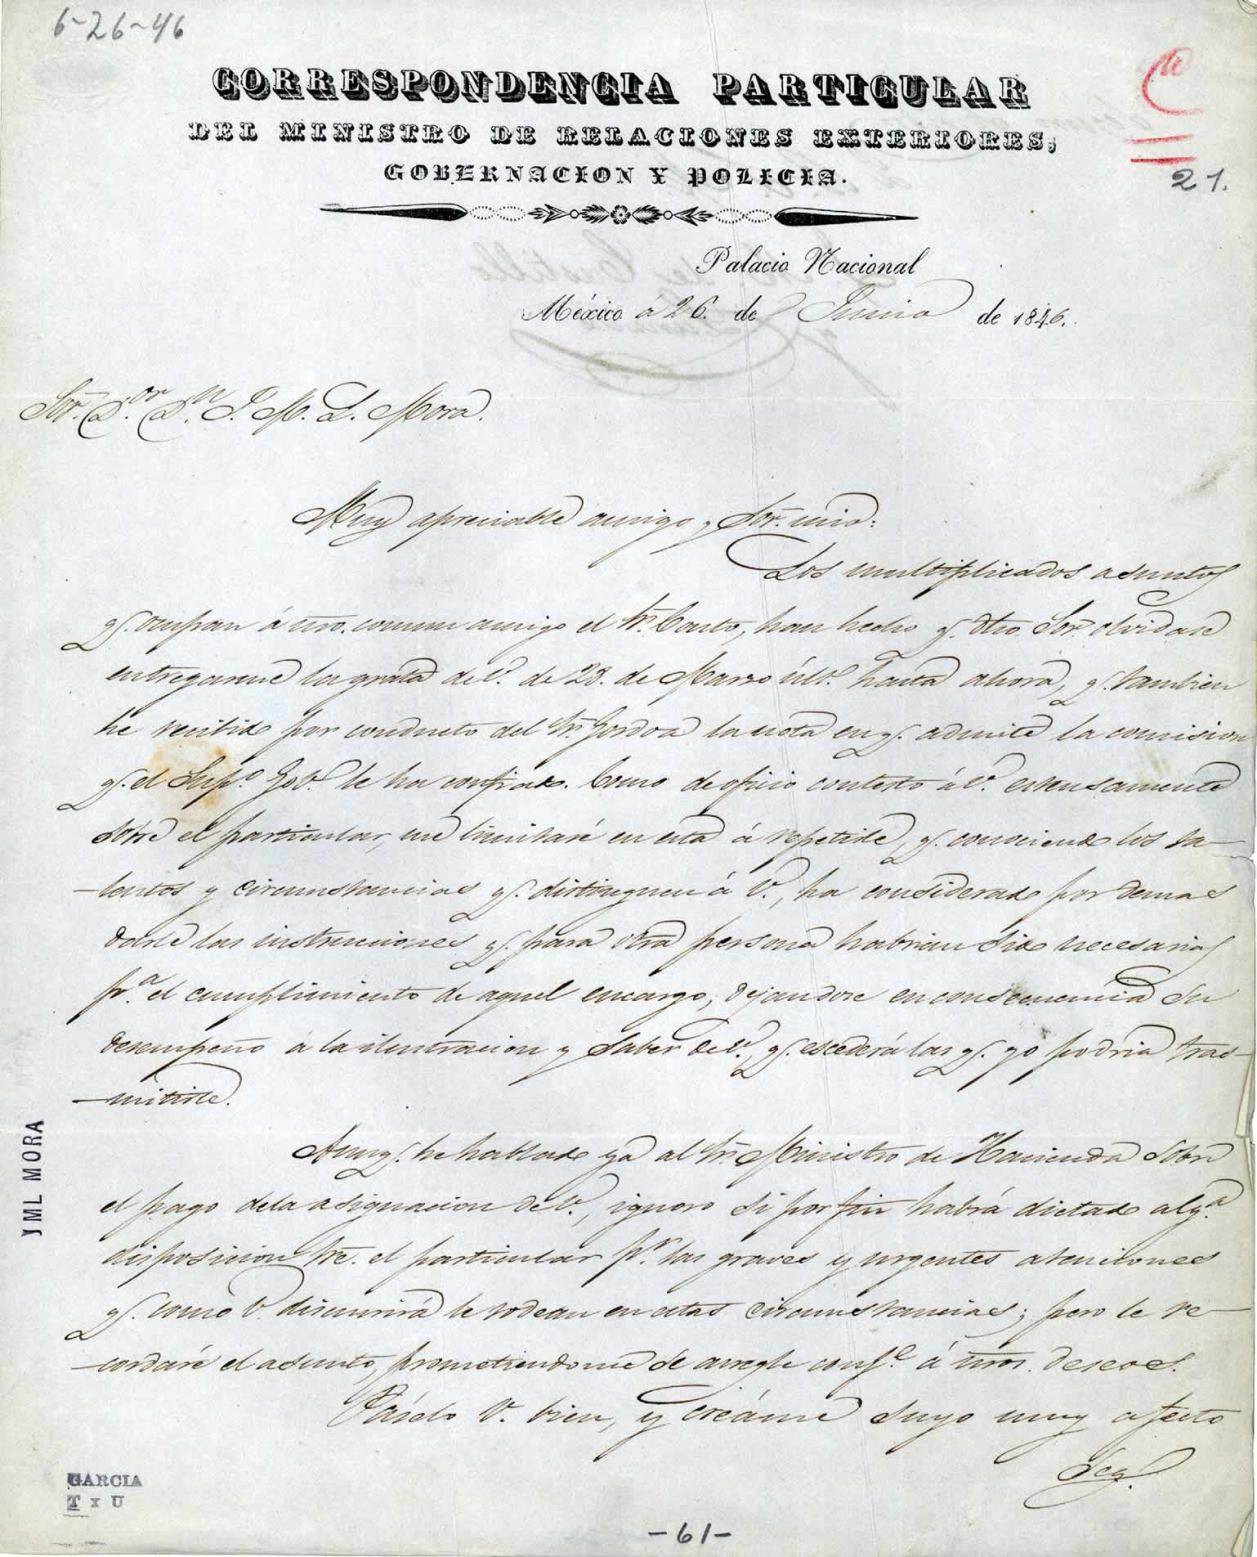 6-26-46
CORRESPONDENCIA PARTICULAR
DEL MINISTRO DE RELACIONES EXTERIORES,
GOBERNACION Y POLICIA.
21.
Palacio Nacional
México á 26. de Junio de 1846.
Sor. Dor. Dn. J. M. L. Mora.
Muy apreciable amigo y Sor. mio:
Los multiplicados asuntos
q. ocupan á nro. comun amigo el Sr. Couto, han hecho q. dho. Sor. olvidase
entregarme la grata de V. de 23. de Marzo últo. hasta ahora, q. tambien
he recibido por conducto del Sr. Gordoa la nota en q. admite la comision
q. el Supo. Gobo. le ha confiado. Como de oficio contesto á V. estensamente
sobre el particular, me limitaré en esta á repetirle, q. conociendo los ta-
-lentos y circunstancias q. distinguen á V., ha considerado por demas
darle las instrucciones q. para otra persona habrian sido necesarias
pa. el cumplimiento de aquel encargo; dejandose en consecuencia su
desempeño á la ilustracion y saber de V., q. escederá las q. yo podria tras-
-mitirle.
Aunq. he hablado ya al Sr. Ministro de Hacienda sobre
el pago de la asignacion de V., ignoro si por fin habrá dictado alga.
disposicion sre. el particular pr. las graves y urgentes atenciones
q. como V. discurrirá le rodean en estas circunstancias; pero le re-
-cordaré el asunto, prometiendome se arregle confe. á nros. deseos.
Páselo V. bien, y creáme suyo muy afecto
Seg.
JML MORA
GARCIA
T x U
-61-